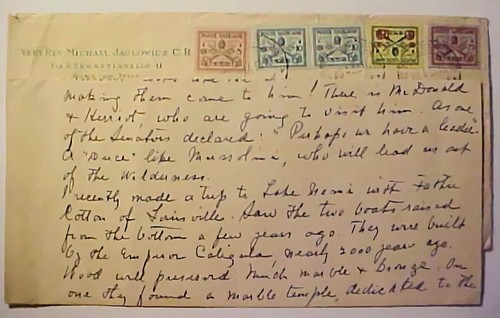 VERY REV. MICHAEL JAGLOWICZ C.R.
VIA SEBASTIANELLO 11
POSTE VATICANE
POSTE VATICANE
POSTE VATICANE
POSTE VATICANE
POSTE VATICANE
making them come to him! There is McDonald
& Herriot who are going to visit him. As one
of the Senators declared: "Perhaps we have a leader"
a "Duce" like Mussolini, who will lead us out
of the Wilderness.
I recently made a trip to Lake Nemi with Father
of Louisville. Saw the two boats raised
from the bottom a few years ago. They were built
by the Emperor Caligula, nearly 2000 years ago.
Wood well preserved. Much marble & bronze. On
one they found a marble temple, dedicated to the